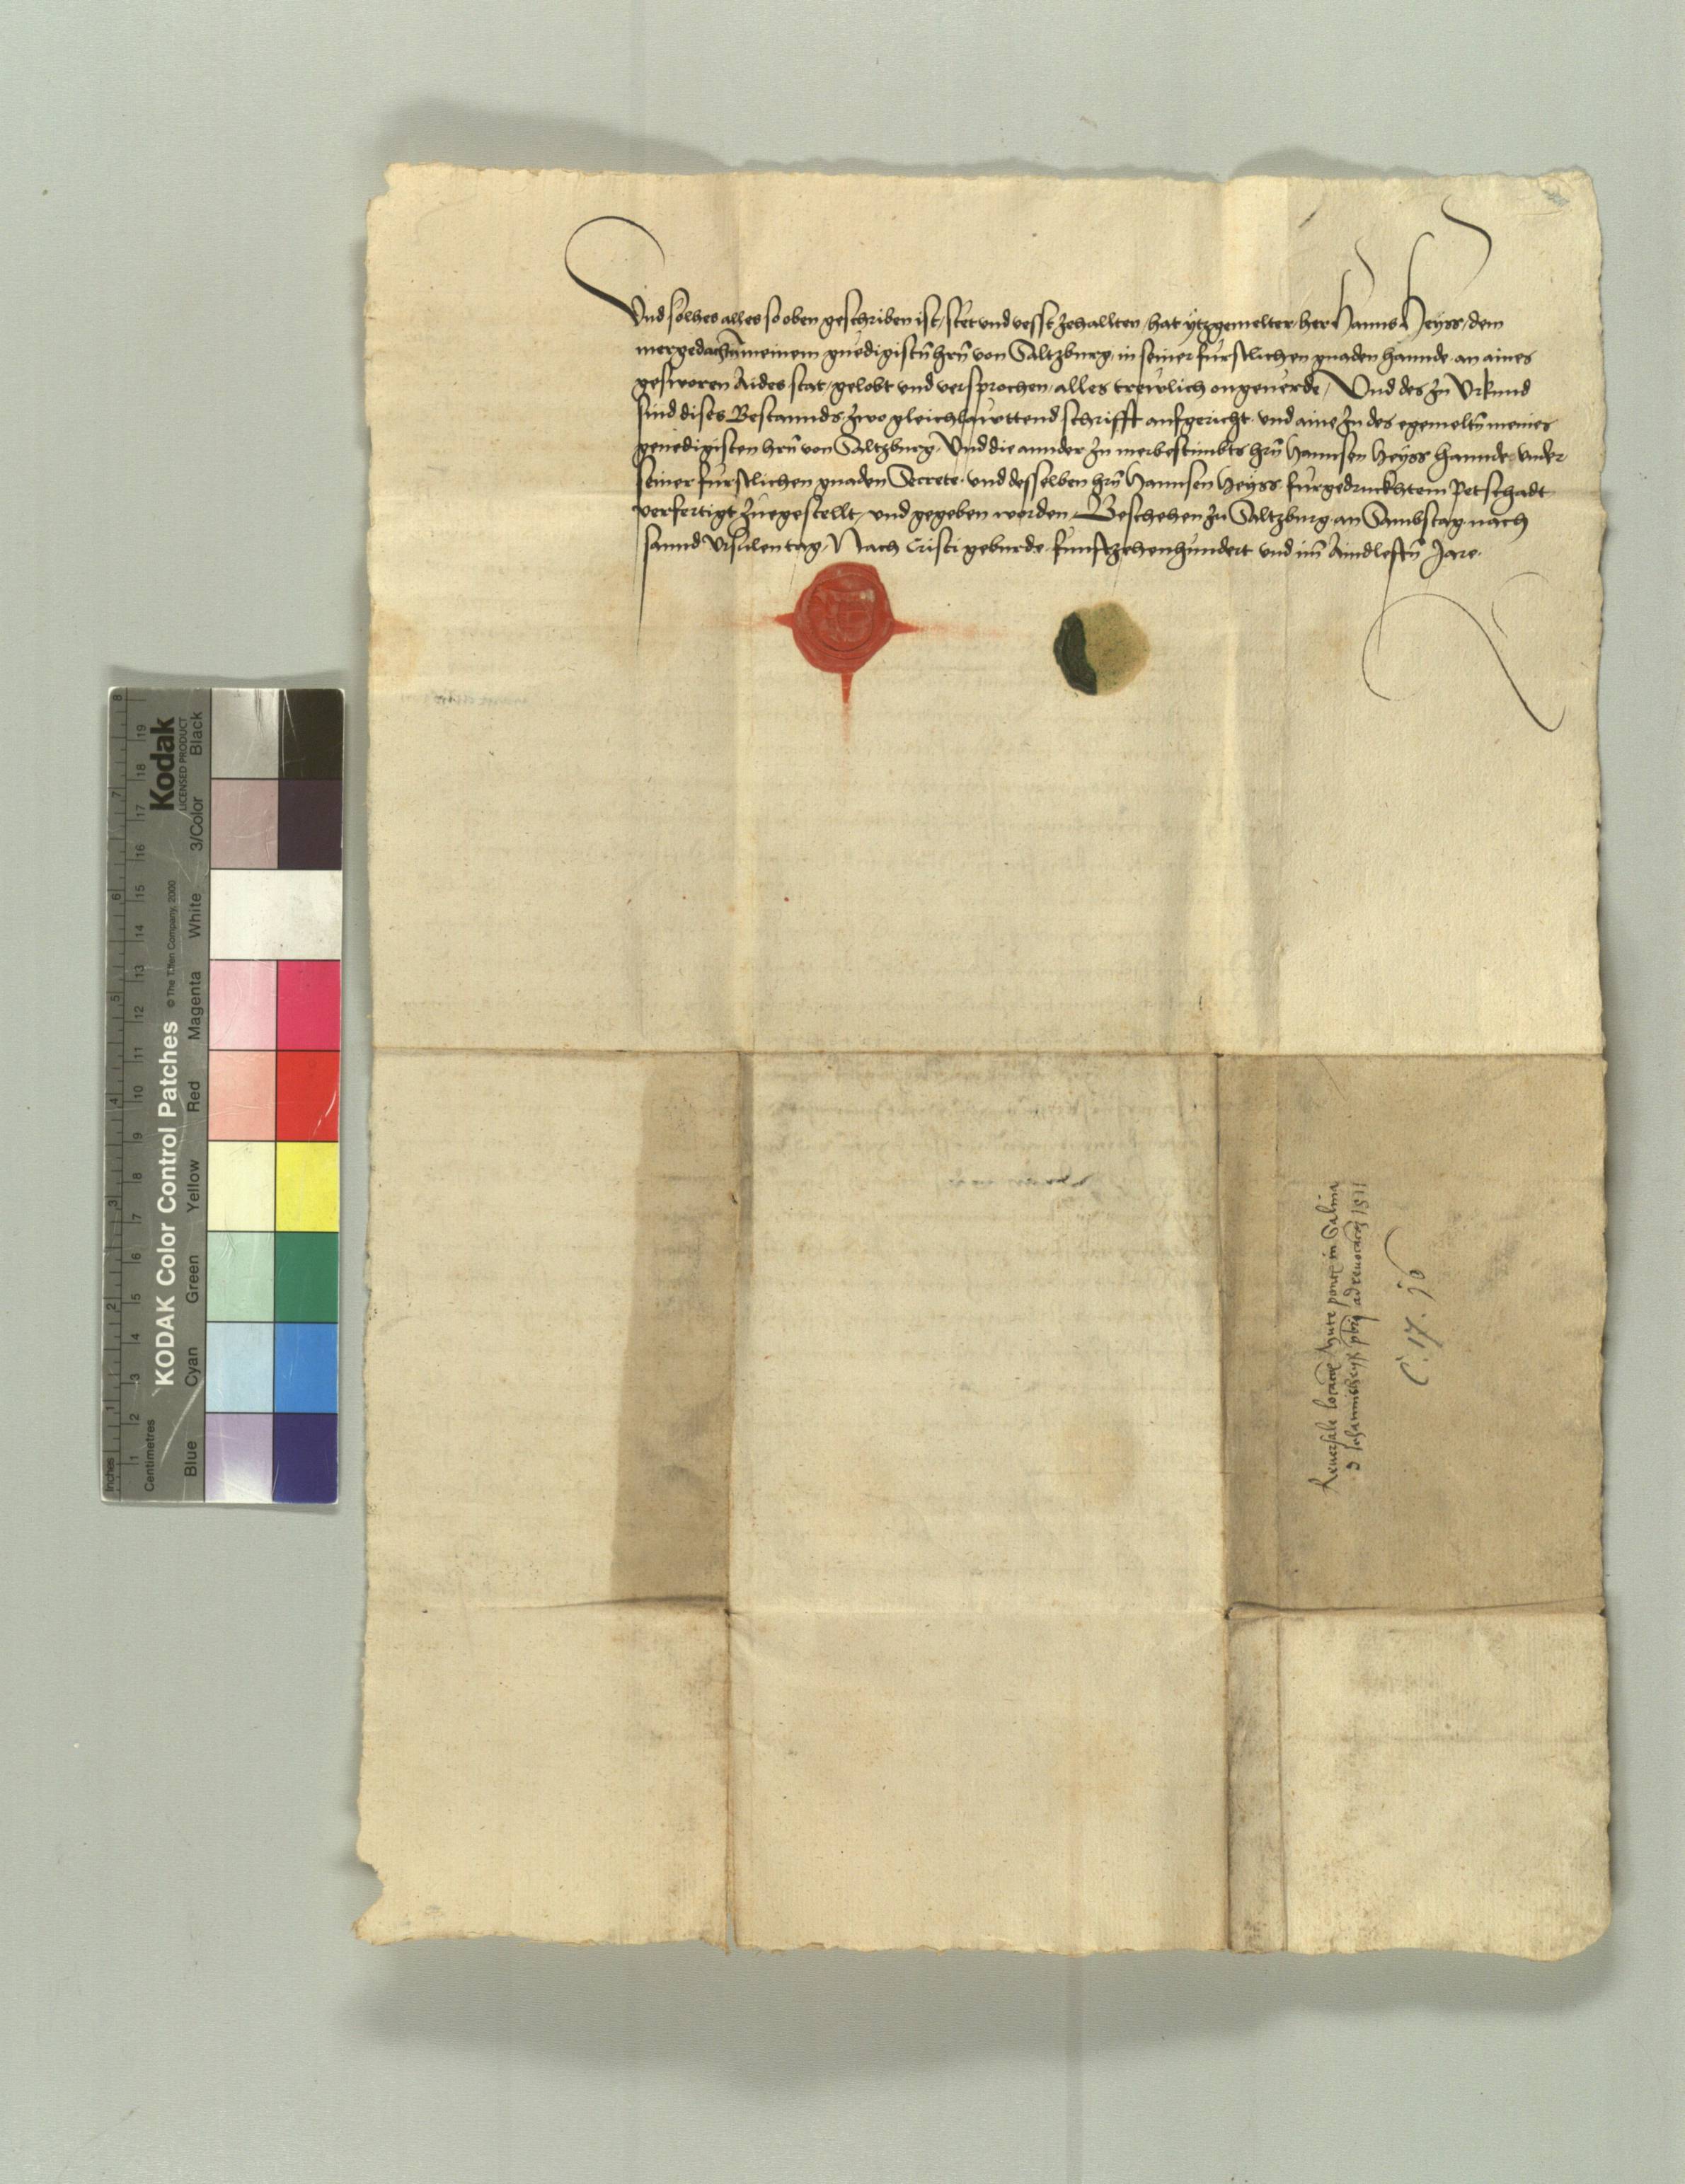 Und solhes alles so oben geschriben ist, stet und vesst zehallten, hat ytzgemelter her Hanns Heyss, dem
mergedachtñ meinem gnedigistñ hrñ von Saltzburg, in seiner fürstlichen gnaden hannde an aines
gesworen Aides stat, gelobt und versprochen, alles trewlich ongeuerde, Und des zu Urkund
sind dises Bestannds zwo gleichlawttend schrifft aufgericht und aine zu des egemeltñ meines
genedigisten hrñ von Saltzburg, Und die annder zu merbestimbts hrñ Hannsen Heyss hannde, under
seiner fürstlichen gnaden Secrete und desselben hrñ Hannsen Heyss fürgedruckhtem Petschadt
verfertigt zuegestellt, und gegeben worden, Beschehen zu Saltzburg an Sambstag nach
sannd Ursulen tag, Nach Cristi geburde funftzehenhundert und im̃ Aindlestñ Jare.
Reversale locate mute ponet in Salina
d Johannis Heyss pbri ad revocacoēz 1511
C. 17. jo
KODAK Color Control Patches
© The Tiffen Company, 2000
Kodak
LICENSED PRODUCT
Inches
1 2 3 4 5 6 7 8
Centimetres
1 2 3 4 5 6 7 8 9 10 11 12 13 14 15 16 17 18 19
Blue Cyan Green Yellow Red Magenta White 3/Color Black